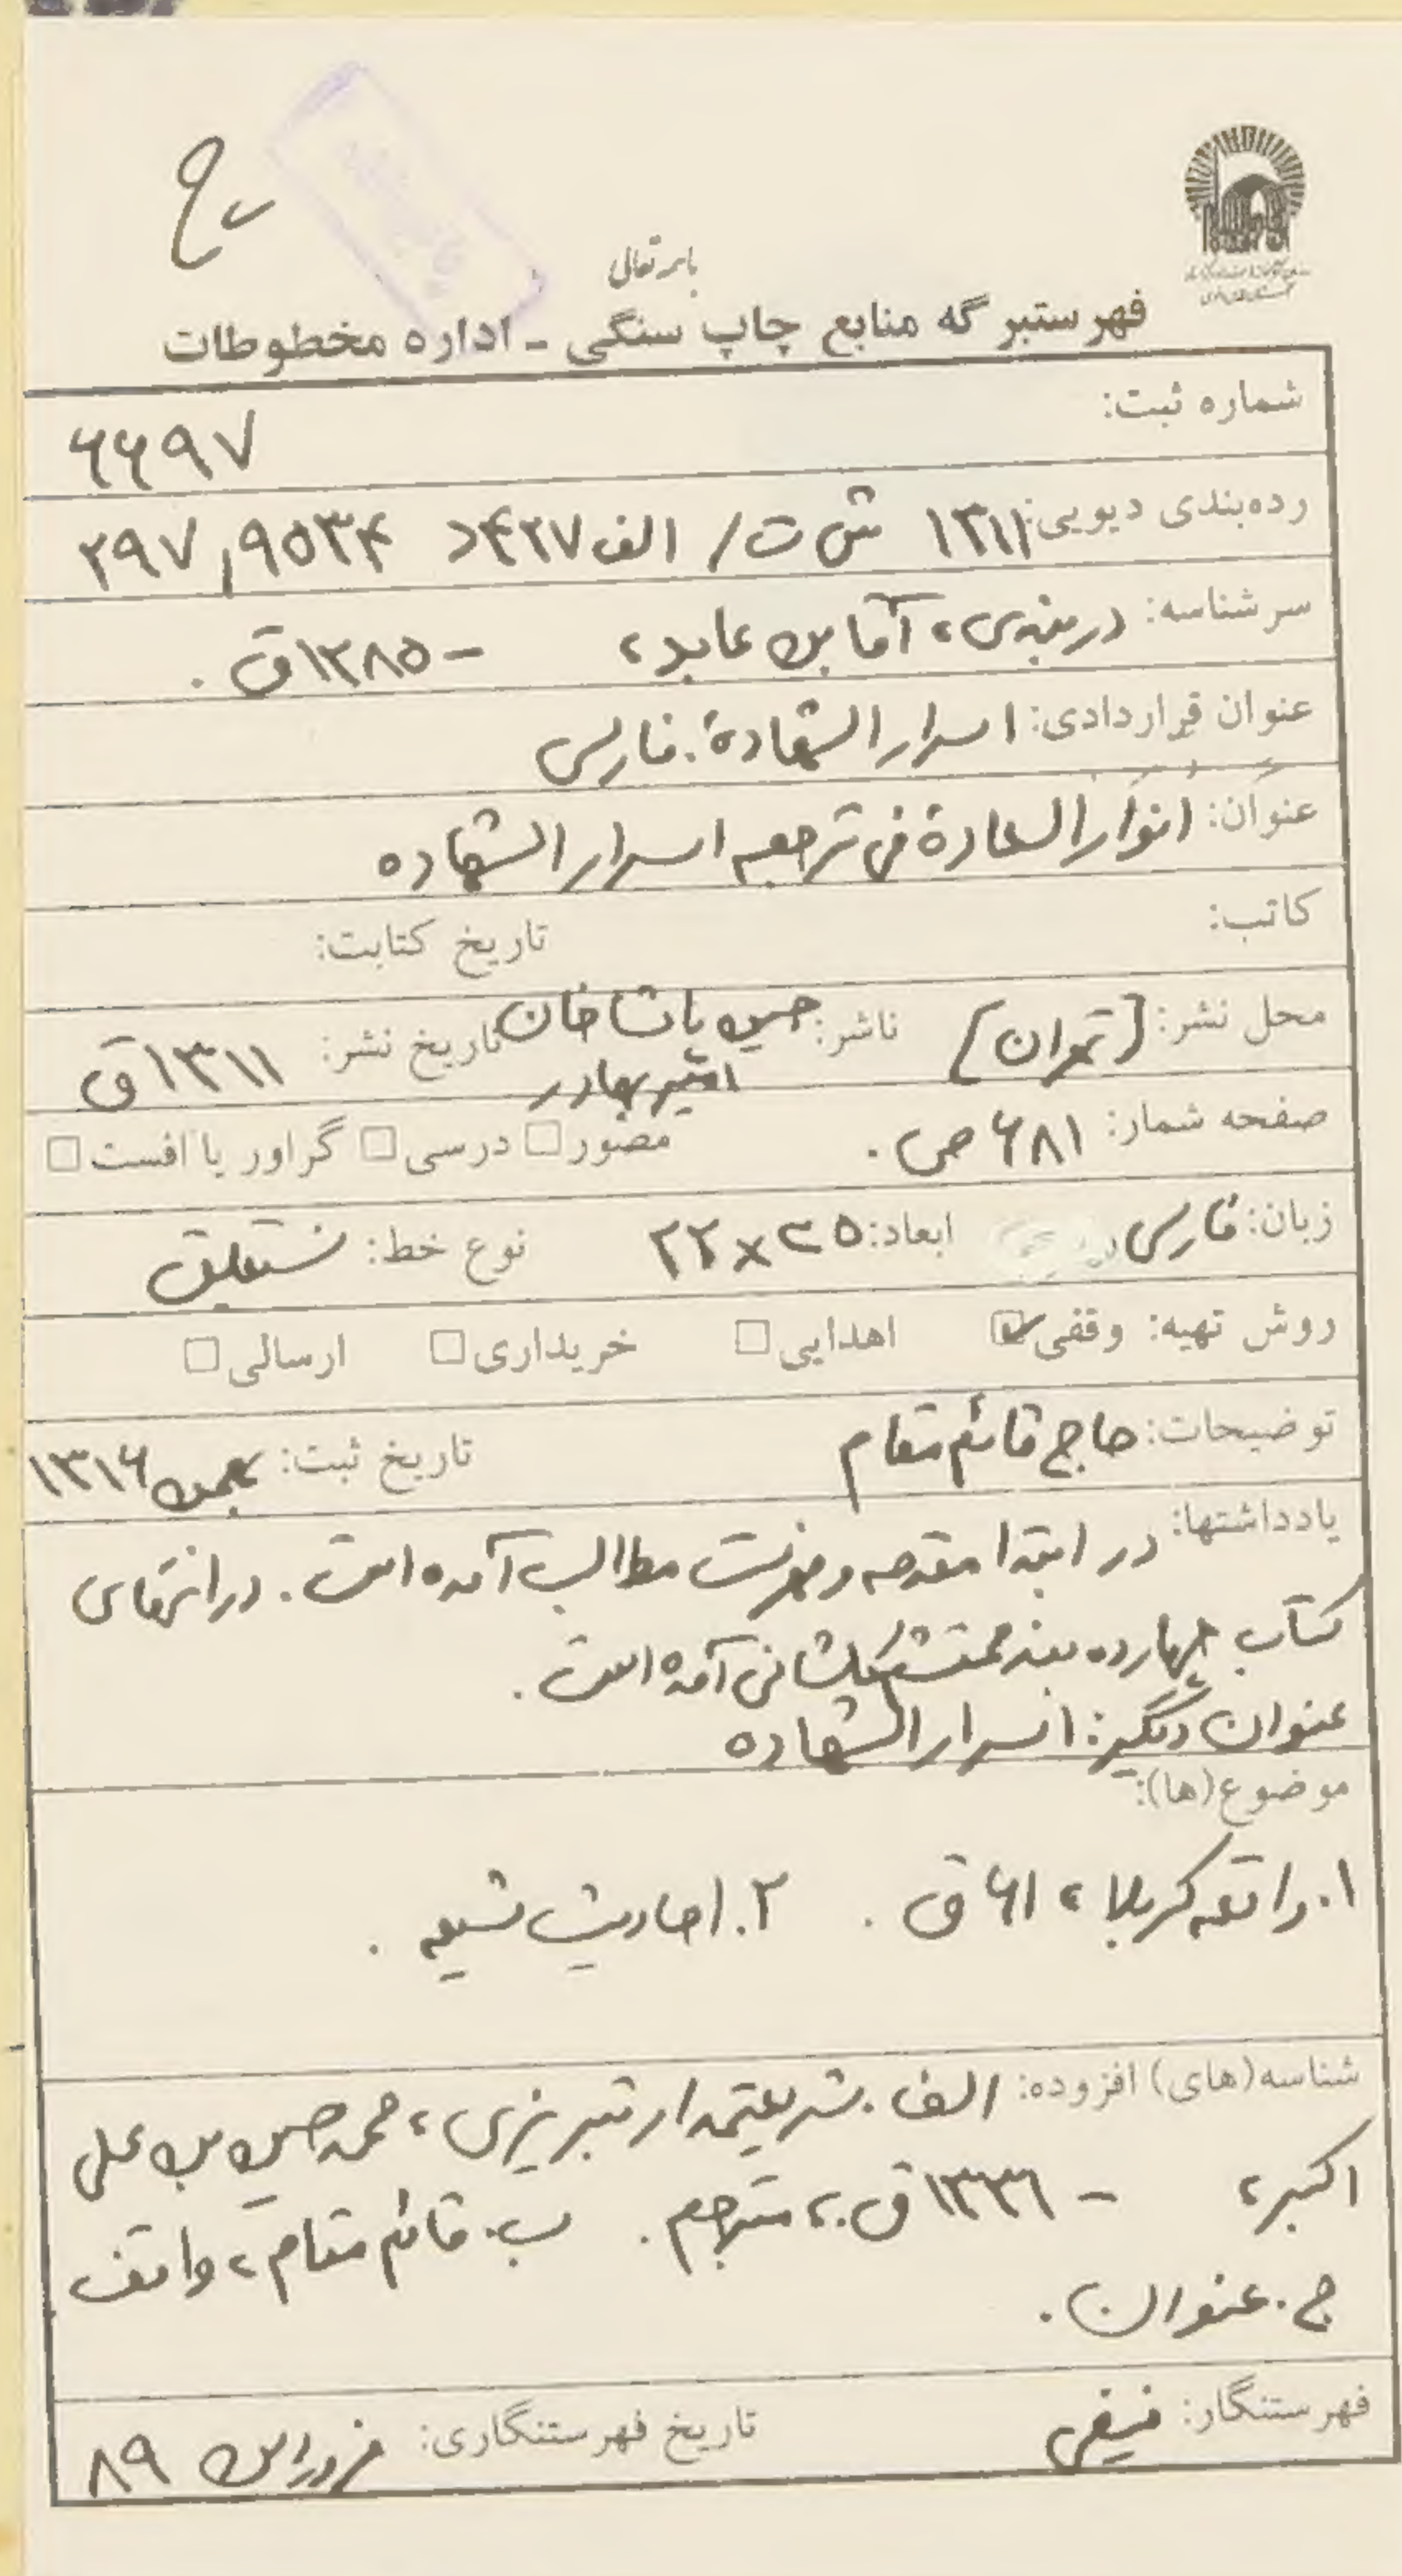 باسمه تعالی
فهرستبرگه منابع چاپ سنگی - اداره مخطوطات
شماره ثبت: ۶۶۹۷
رده‌بندی دیویی: ۲۹۷٫۹۵۳۴ د۴۲۷الف / ش ت ۱۳۱۱
سرشناسه: دربندی، آقا بن عابد، - ۱۲۸۵ق.
عنوان قراردادی: اسرار الشهادة. فارسی
عنوان: انوار السعادة فی ترجمه اسرار الشهاده
کاتب: تاریخ کتابت:
محل نشر: [تهران] ناشر: حسین پاشا خان امیر بهادر تاریخ نشر: ۱۳۱۱ق
صفحه شمار: ۶۸۱ ص. مصور □ درسی □ گراور یا افست □
زبان: فارسی ابعاد: ۲۲×۳۵ نوع خط: نستعلیق
روش تهیه: وقفی ☑ اهدایی □ خریداری □ ارسالی □
توضیحات: حاج قائم مقام تاریخ ثبت: بهمن ۱۳۱۶
یادداشتها: در ابتدا مقدمه و فهرست مطالب آمده است. در انتهای
کتاب چهارده بند محتشم کاشانی آمده است.
عنوان دیگر: اسرار الشهاده
موضوع(ها):
۱. واقعه کربلا، ۶۱ ق. ۲. احادیث شیعه.
شناسه(های) افزوده: الف. شریعتمدار تبریزی، محمد حسین بن علی
اکبر، - ۱۳۳۶ ق.، مترجم. ب. قائم مقام، واقف
ج. عنوان.
فهرستنگار: فیفی تاریخ فهرستنگاری: فروردین ۸۹